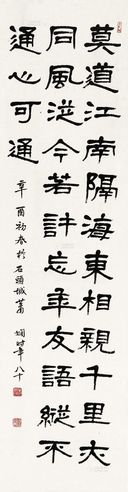 莫道江南隔海東相親千里亦
同風從今若許忘年友語縱不
通心可通
辛酉初春於石頭城蕭
嫻時年八十